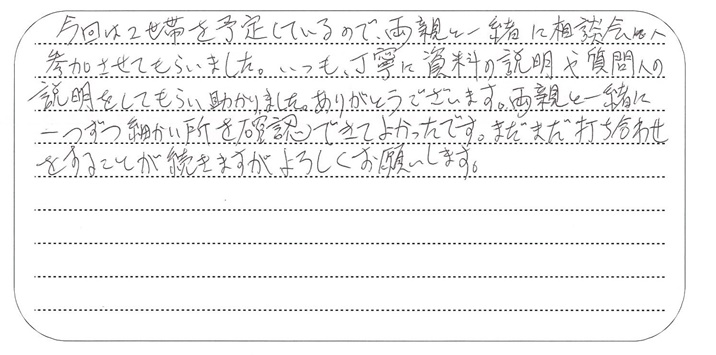 今回は2世帯を予定しているので、両親と一緒に相談会に
参加させてもらいました。いつも、丁寧に資料の説明や質問への
説明をしてもらい助かりました。ありがとうございます。両親と一緒に
一つずつ細かい所を確認できてよかったです。まだまだ打ち合わせ
をすることが続きますがよろしくお願いします。